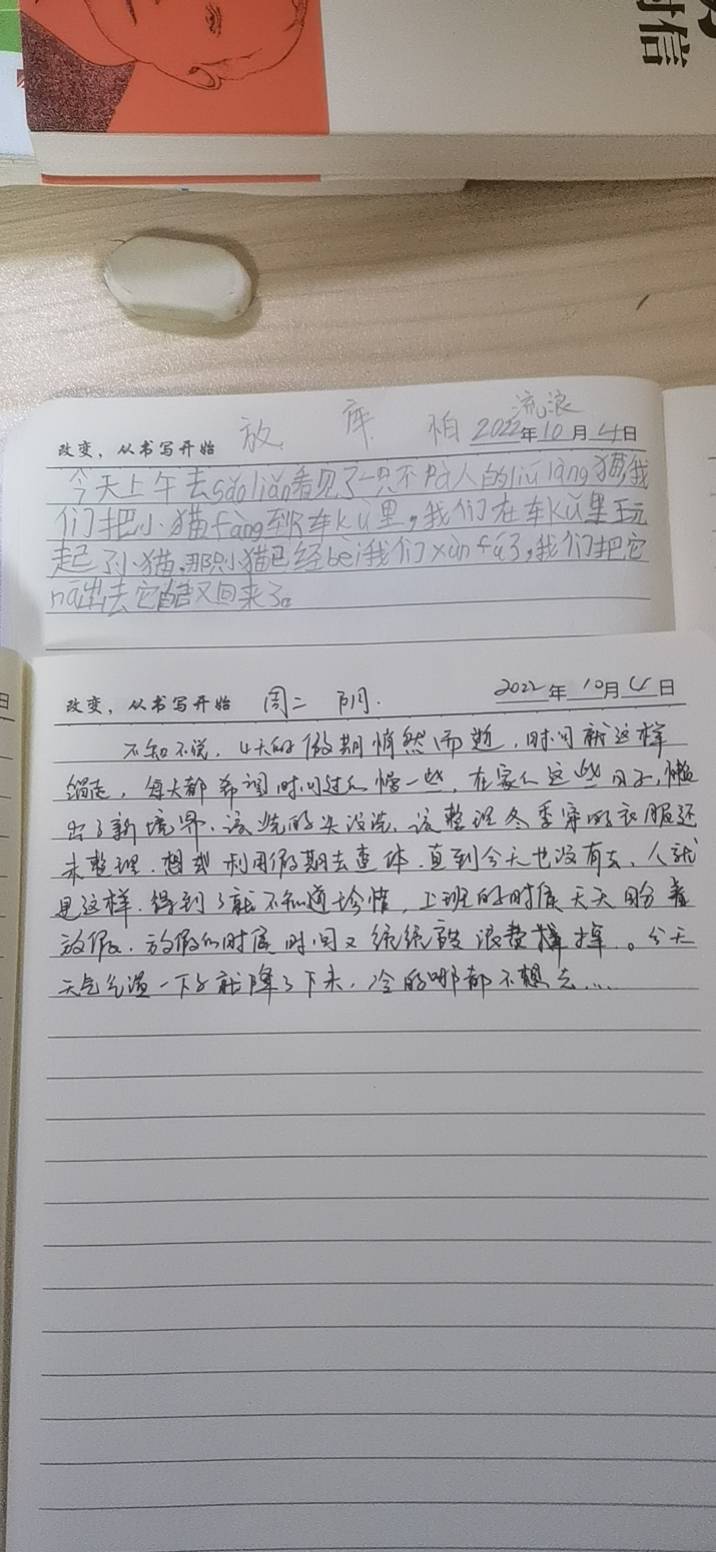 时信
放 库 怕 流浪
改变，从书写开始 2022年10月4日
今天上午去sǎoliǎn看见了一只不pà人的liú làng猫我
们把小猫fàng到车kù里，我们在车kù里玩
起了小猫，那只小猫已经bèi我们xùn fú了，我们把它
ná出去它又回来了。
改变，从书写开始 周二 阴. 2022年10月4日
不知不觉，4天的假期悄然而逝，时间就这样
溜走，每天都希望时间过的慢一些，在家人这些日子，懒
出了新境界，该洗的头没洗，该整理冬季穿的衣服还
未整理，想利用假期去查体，直到今天也没有去，人就
是这样，得到了就不知道珍惜，上班的时候天天盼着
放假，放假的时候时间又统统被浪费掉。今天
天气气温一下子就降了下来，冷的哪都不想去...